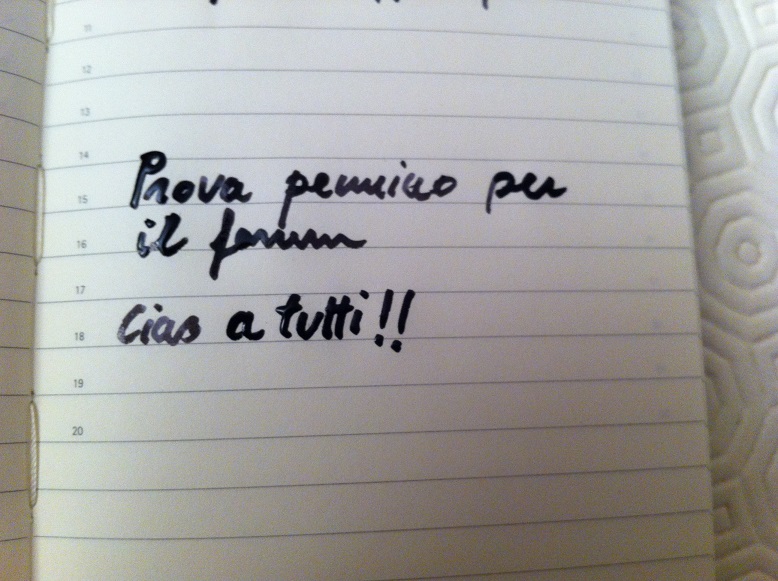 11
12
13
14
Prova pennino per
15
il forum
16
17
Ciao a tutti!!
18
19
20